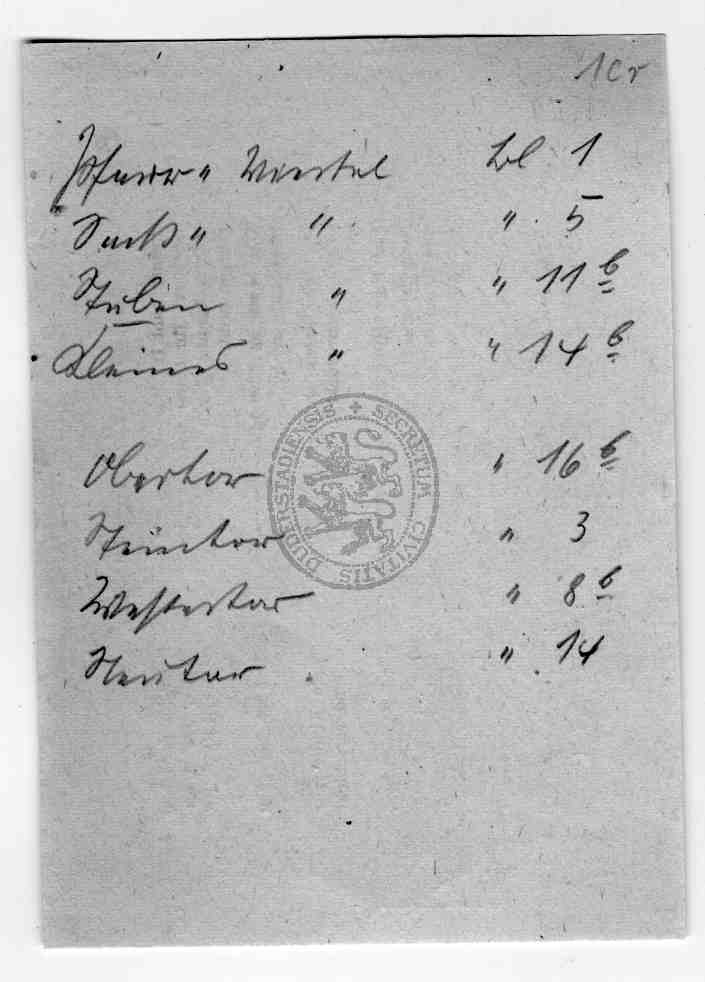 1cr
Pfarr " Viertel Bl 1
Sack " " " 5
Stuben " " 11 b
Kleines " " 14 b
Obertor " 16 b
Steintor " 3
Westertor " 8 b
Neutor " 14
SECRETUM CIVITATIS DUDERSTADIENSIS